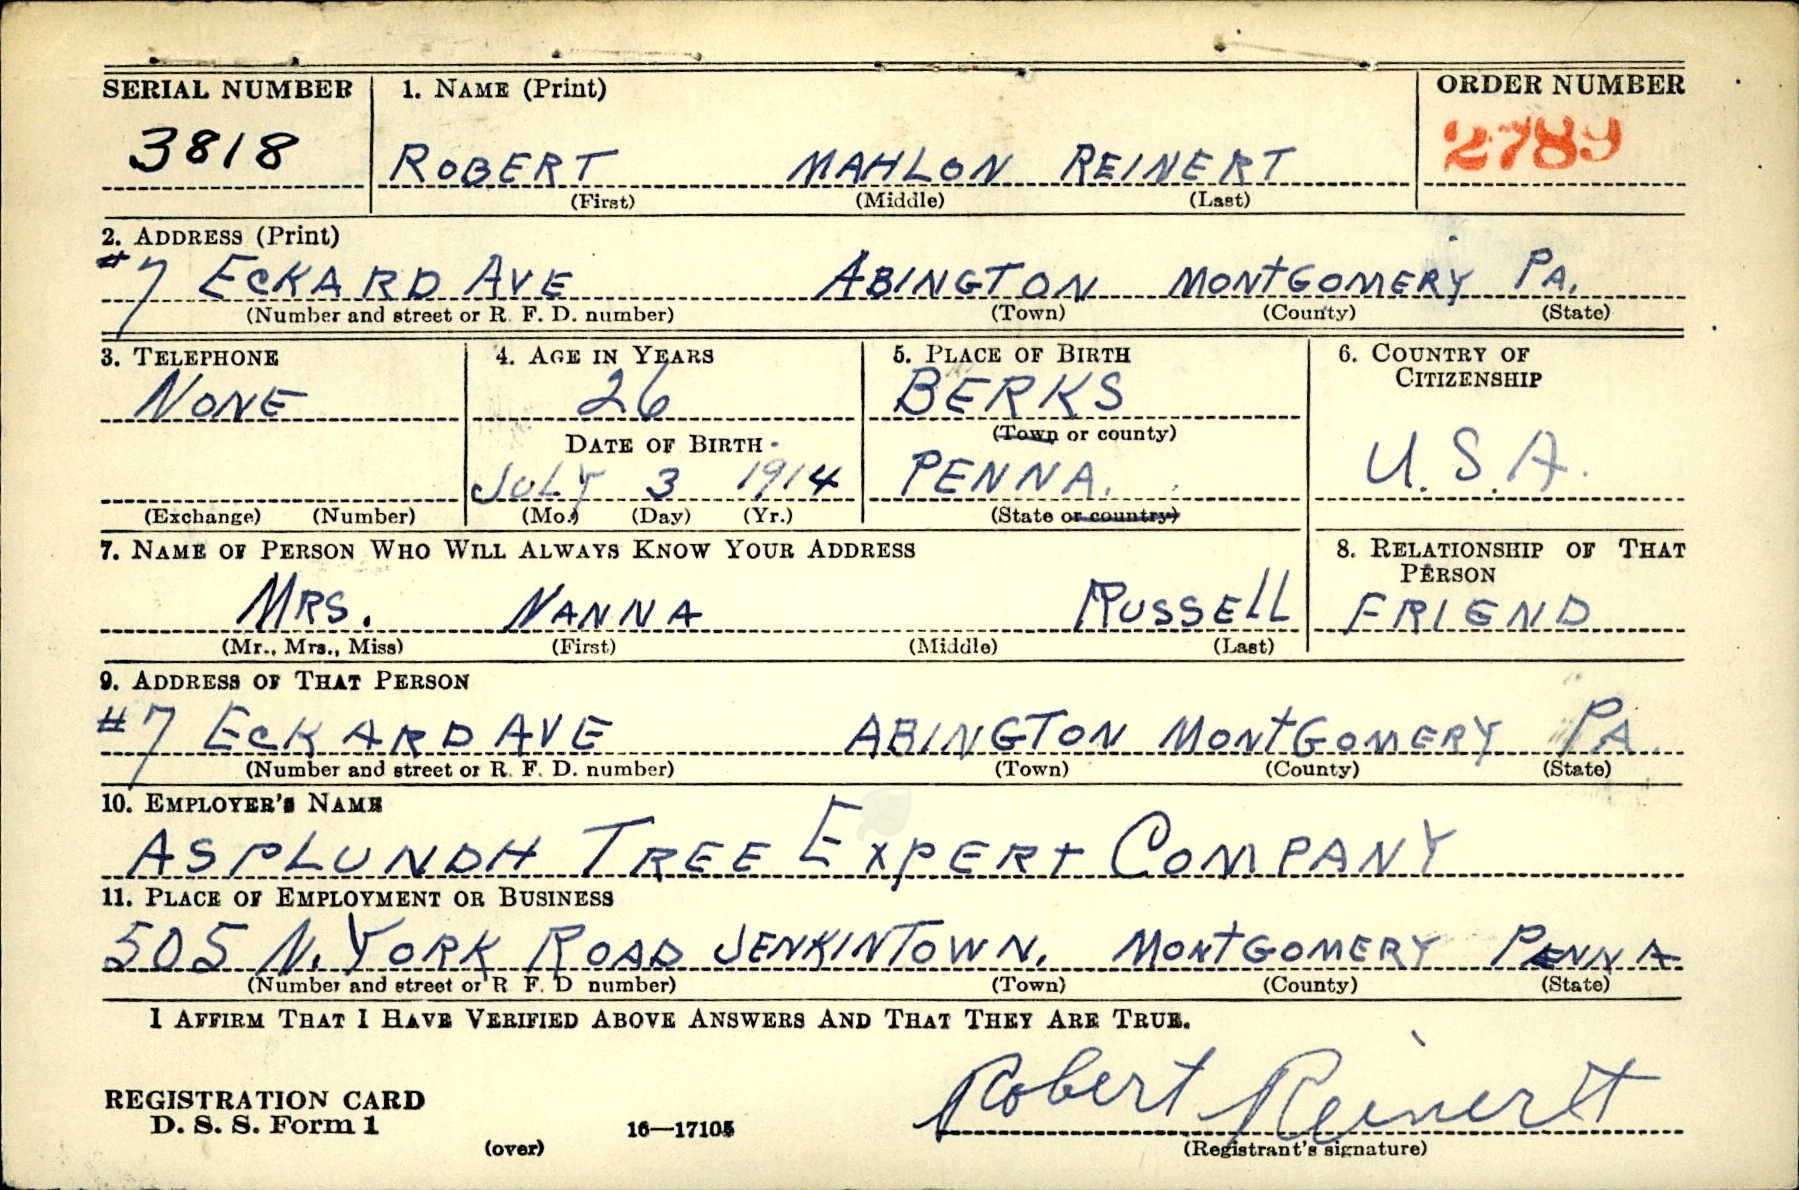 SERIAL NUMBER 1. NAME (Print) ORDER NUMBER
3818 ROBERT MAHLON REINERT 2789
(First) (Middle) (Last)
2. ADDRESS (Print)
#7 ECKARD AVE ABINGTON MONTGOMERY PA.
(Number and street or R. F. D. number) (Town) (County) (State)
3. TELEPHONE 4. AGE IN YEARS 5. PLACE OF BIRTH 6. COUNTRY OF
CITIZENSHIP
NONE 26 BERKS
DATE OF BIRTH (Town or county)
JULY 3 1914 PENNA. U.S.A.
(Exchange) (Number) (Mo.) (Day) (Yr.) (State or country)
7. NAME OF PERSON WHO WILL ALWAYS KNOW YOUR ADDRESS 8. RELATIONSHIP OF THAT
PERSON
MRS. NANNA RUSSELL FRIEND
(Mr., Mrs., Miss) (First) (Middle) (Last)
9. ADDRESS OF THAT PERSON
#7 ECKARD AVE ABINGTON MONTGOMERY PA.
(Number and street or R. F. D. number) (Town) (County) (State)
10. EMPLOYER'S NAME
ASPLUNDH TREE EXPERT COMPANY
11. PLACE OF EMPLOYMENT OR BUSINESS
505 N. YORK ROAD JENKINTOWN. MONTGOMERY PENNA
(Number and street or R F. D number) (Town) (County) (State)
I AFFIRM THAT I HAVE VERIFIED ABOVE ANSWERS AND THAT THEY ARE TRUE.
Robert Reinert
REGISTRATION CARD
D. S. S. Form 1
(over) 16—17105 (Registrant's signature)